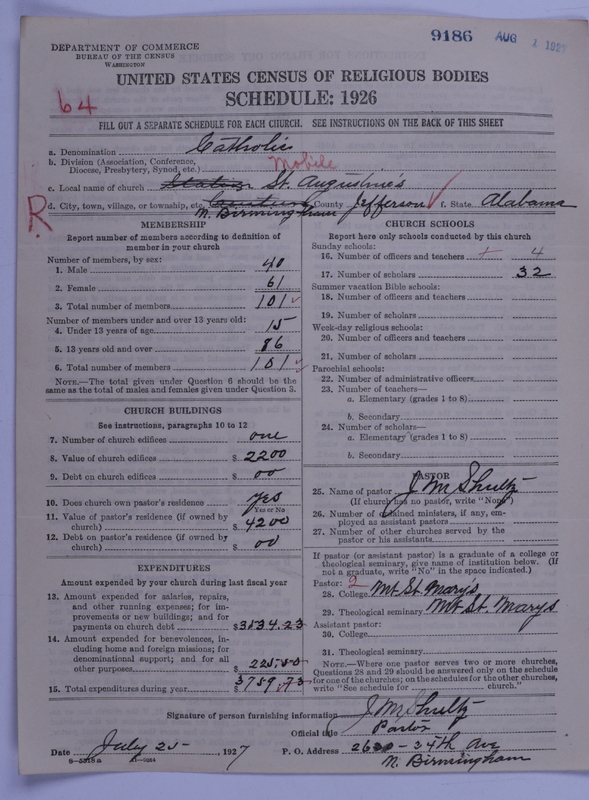 9186 AUG 1 1927
DEPARTMENT OF COMMERCE
BUREAU OF THE CENSUS
WASHINGTON
UNITED STATES CENSUS OF RELIGIOUS BODIES
SCHEDULE: 1926
64
FILL OUT A SEPARATE SCHEDULE FOR EACH CHURCH. SEE INSTRUCTIONS ON THE BACK OF THIS SHEET
a. Denomination Catholic
b. Division (Association, Conference,
Diocese, Presbytery, Synod, etc.) Mobile
c. Local name of church St. Augustine's
R
d. City, town, village, or township, etc. County Jefferson f. State Alabama
N. Birmingham
MEMBERSHIP
Report number of members according to definition of
member in your church
Number of members, by sex:
1. Male 40
2. Female 61
3. Total number of members 101
Number of members under and over 13 years old:
4. Under 13 years of age 15
5. 13 years old and over 86
6. Total number of members 101
NOTE.—The total given under Question 6 should be the
same as the total of males and females given under Question 3.
CHURCH BUILDINGS
See instructions, paragraphs 10 to 12
7. Number of church edifices one
8. Value of church edifices $ 2200
9. Debt on church edifices $ 00
10. Does church own pastor's residence yes
Yes or No
11. Value of pastor's residence (if owned by
church) $ 4200
12. Debt on pastor's residence (if owned by
church) $ 00
EXPENDITURES
Amount expended by your church during last fiscal year
13. Amount expended for salaries, repairs,
and other running expenses; for im-
provements or new buildings; and for
payments on church debt $3534.23
14. Amount expended for benevolences, in-
cluding home and foreign missions; for
denominational support; and for all
other purposes $ 225.50
15. Total expenditures during year $ 3759.73
CHURCH SCHOOLS
Report here only schools conducted by this church
Sunday schools:
16. Number of officers and teachers 4
17. Number of scholars 32
Summer vacation Bible schools:
18. Number of officers and teachers
19. Number of scholars
Week-day religious schools:
20. Number of officers and teachers
21. Number of scholars
Parochial schools:
22. Number of administrative officers
23. Number of teachers—
a. Elementary (grades 1 to 8)
b. Secondary
24. Number of scholars—
a. Elementary (grades 1 to 8)
b. Secondary
PASTOR
25. Name of pastor J M Shultz
(If church has no pastor, write "None")
26. Number of ordained ministers, if any, em-
ployed as assistant pastors
27. Number of other churches served by the
pastor or his assistants
If pastor (or assistant pastor) is a graduate of a college or
theological seminary, give name of institution below. (If
not a graduate, write "No" in the space indicated.)
Pastor: 2
28. College Mt St. Mary's
29. Theological seminary Mt St. Marys
Assistant pastor:
30. College
31. Theological seminary
NOTE.—Where one pastor serves two or more churches,
Questions 28 and 29 should be answered only on the schedule
for one of the churches; on the schedules for the other churches,
write "See schedule for church."
Signature of person furnishing information J M Shultz
Official title Pastor
Date July 25 1927 P. O. Address 2630 - 34th Ave
N. Birmingham